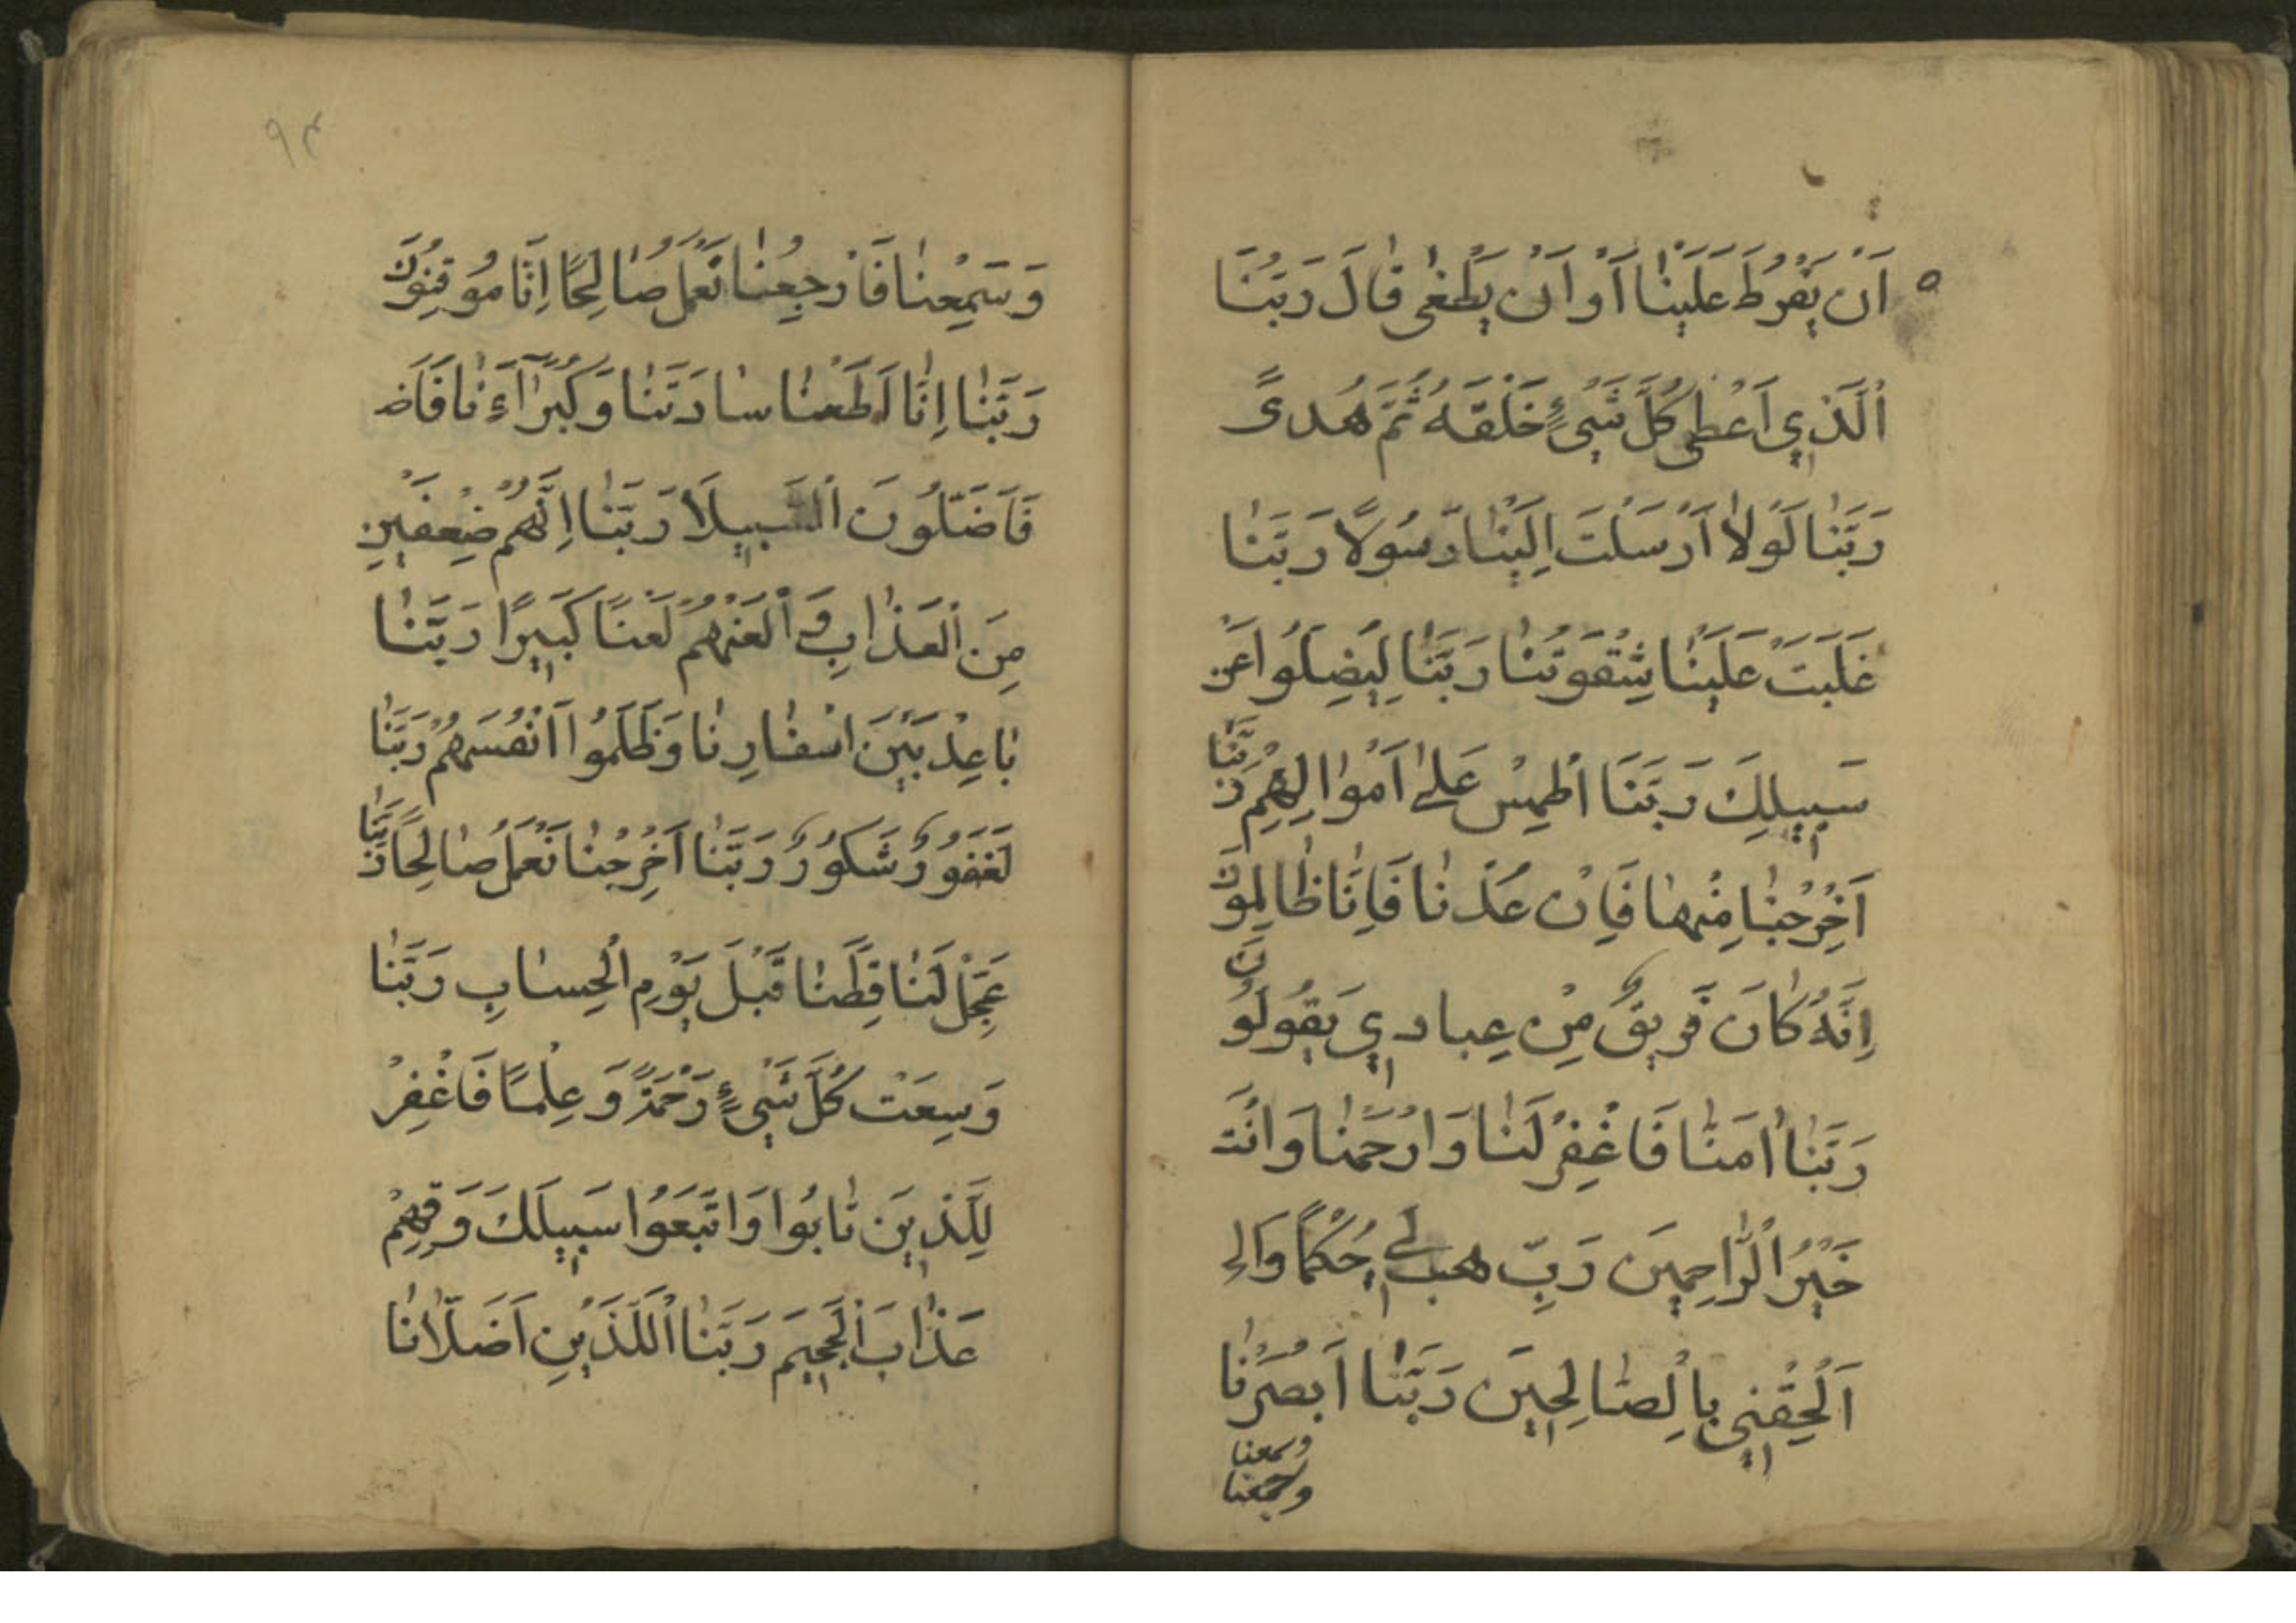 اَنْ يَفْرُطَ عَلَيْنٰا اَوْ اَنْ يَطْغٰى قٰالَ رَبُّنَا
اَلَّذِي اَعْطىٰ كُلَّ شَيْءٍ خَلْقَهُ ثُمَّ هَُدىً
رَبَّنٰا لَوْلاٰ اَرْسَلْتَ اِلَيْنٰا رَسُولًا رَبَّنٰا
غَلَبَتْ عَلَيْنٰا شِقْوَتُنٰا رَبَّنٰا لِيُضِلُّوا عَنْ
سَبِيلِكَ رَبَّنَا اطْمِسْ عَلىٰ اَمْوٰالِهِمْ رَبَّنٰا
اَخْرِجْنٰا مِنْهٰا فَاِنْ عُدْنٰا فَاِنّٰا ظٰالِمُونَ
اِنَّهُ كٰانَ فَرِيقٌ مِنْ عِبادِي يَقُولُونَ
رَبَّنٰا اٰمَنّٰا فَاغْفِرْ لَنٰا وَارْحَمْنٰا وَاَنْتَ
خَيْرُ الرّٰاحِمِينَ رَبِّ هَبْ لِي حُكْمًا وَالِ
اَلْحِقْنِي بِالصّٰالِحِينَ رَبَّنٰا اَبْصَرْنٰا
وسمعنا
وسمعنا
٩٣
وَسَمِعْنٰا فَارْجِعْنٰا نَعْمَلْ صٰالِحًا اِنّٰا مُوقِنُونَ
رَبَّنٰا اِنّٰا اَطَعْنٰا سٰادَتَنٰا وَكُبَرٰآءَنٰا فَاَضَ
فَاَضَلُّونَ السَّبِيلَا رَبَّنٰا اِنَّهُمْ ضِعْفَيْنِ
مِنَ الْعَذٰابِ وَالْعَنْهُمْ لَعْنًا كَبِيرًا رَبَّنٰا
بٰاعِدْ بَيْنَ اَسْفٰارِنٰا وَظَلَمُوا اَنْفُسَهُمْ رَبَّنٰا
لَغَفُورٌ شَكُورٌ رَبَّنٰا اَخْرِجْنٰا نَعْمَلْ صٰالِحًا رَبَّنٰا
عَجِّلْ لَنٰا قِطَّنٰا قَبْلَ يَوْمِ الْحِسٰابِ رَبَّنٰا
وَسِعْتَ كُلَّ شَيْءٍ رَحْمَةً وَعِلْمًا فَاغْفِرْ
لِلَّذِينَ تٰابُوا وَاتَّبَعُوا سَبِيلَكَ وَقِهِمْ
عَذٰابَ الْجَحِيمَ رَبَّنٰا اَللَّذَيْنِ اَضَلّاٰنٰا